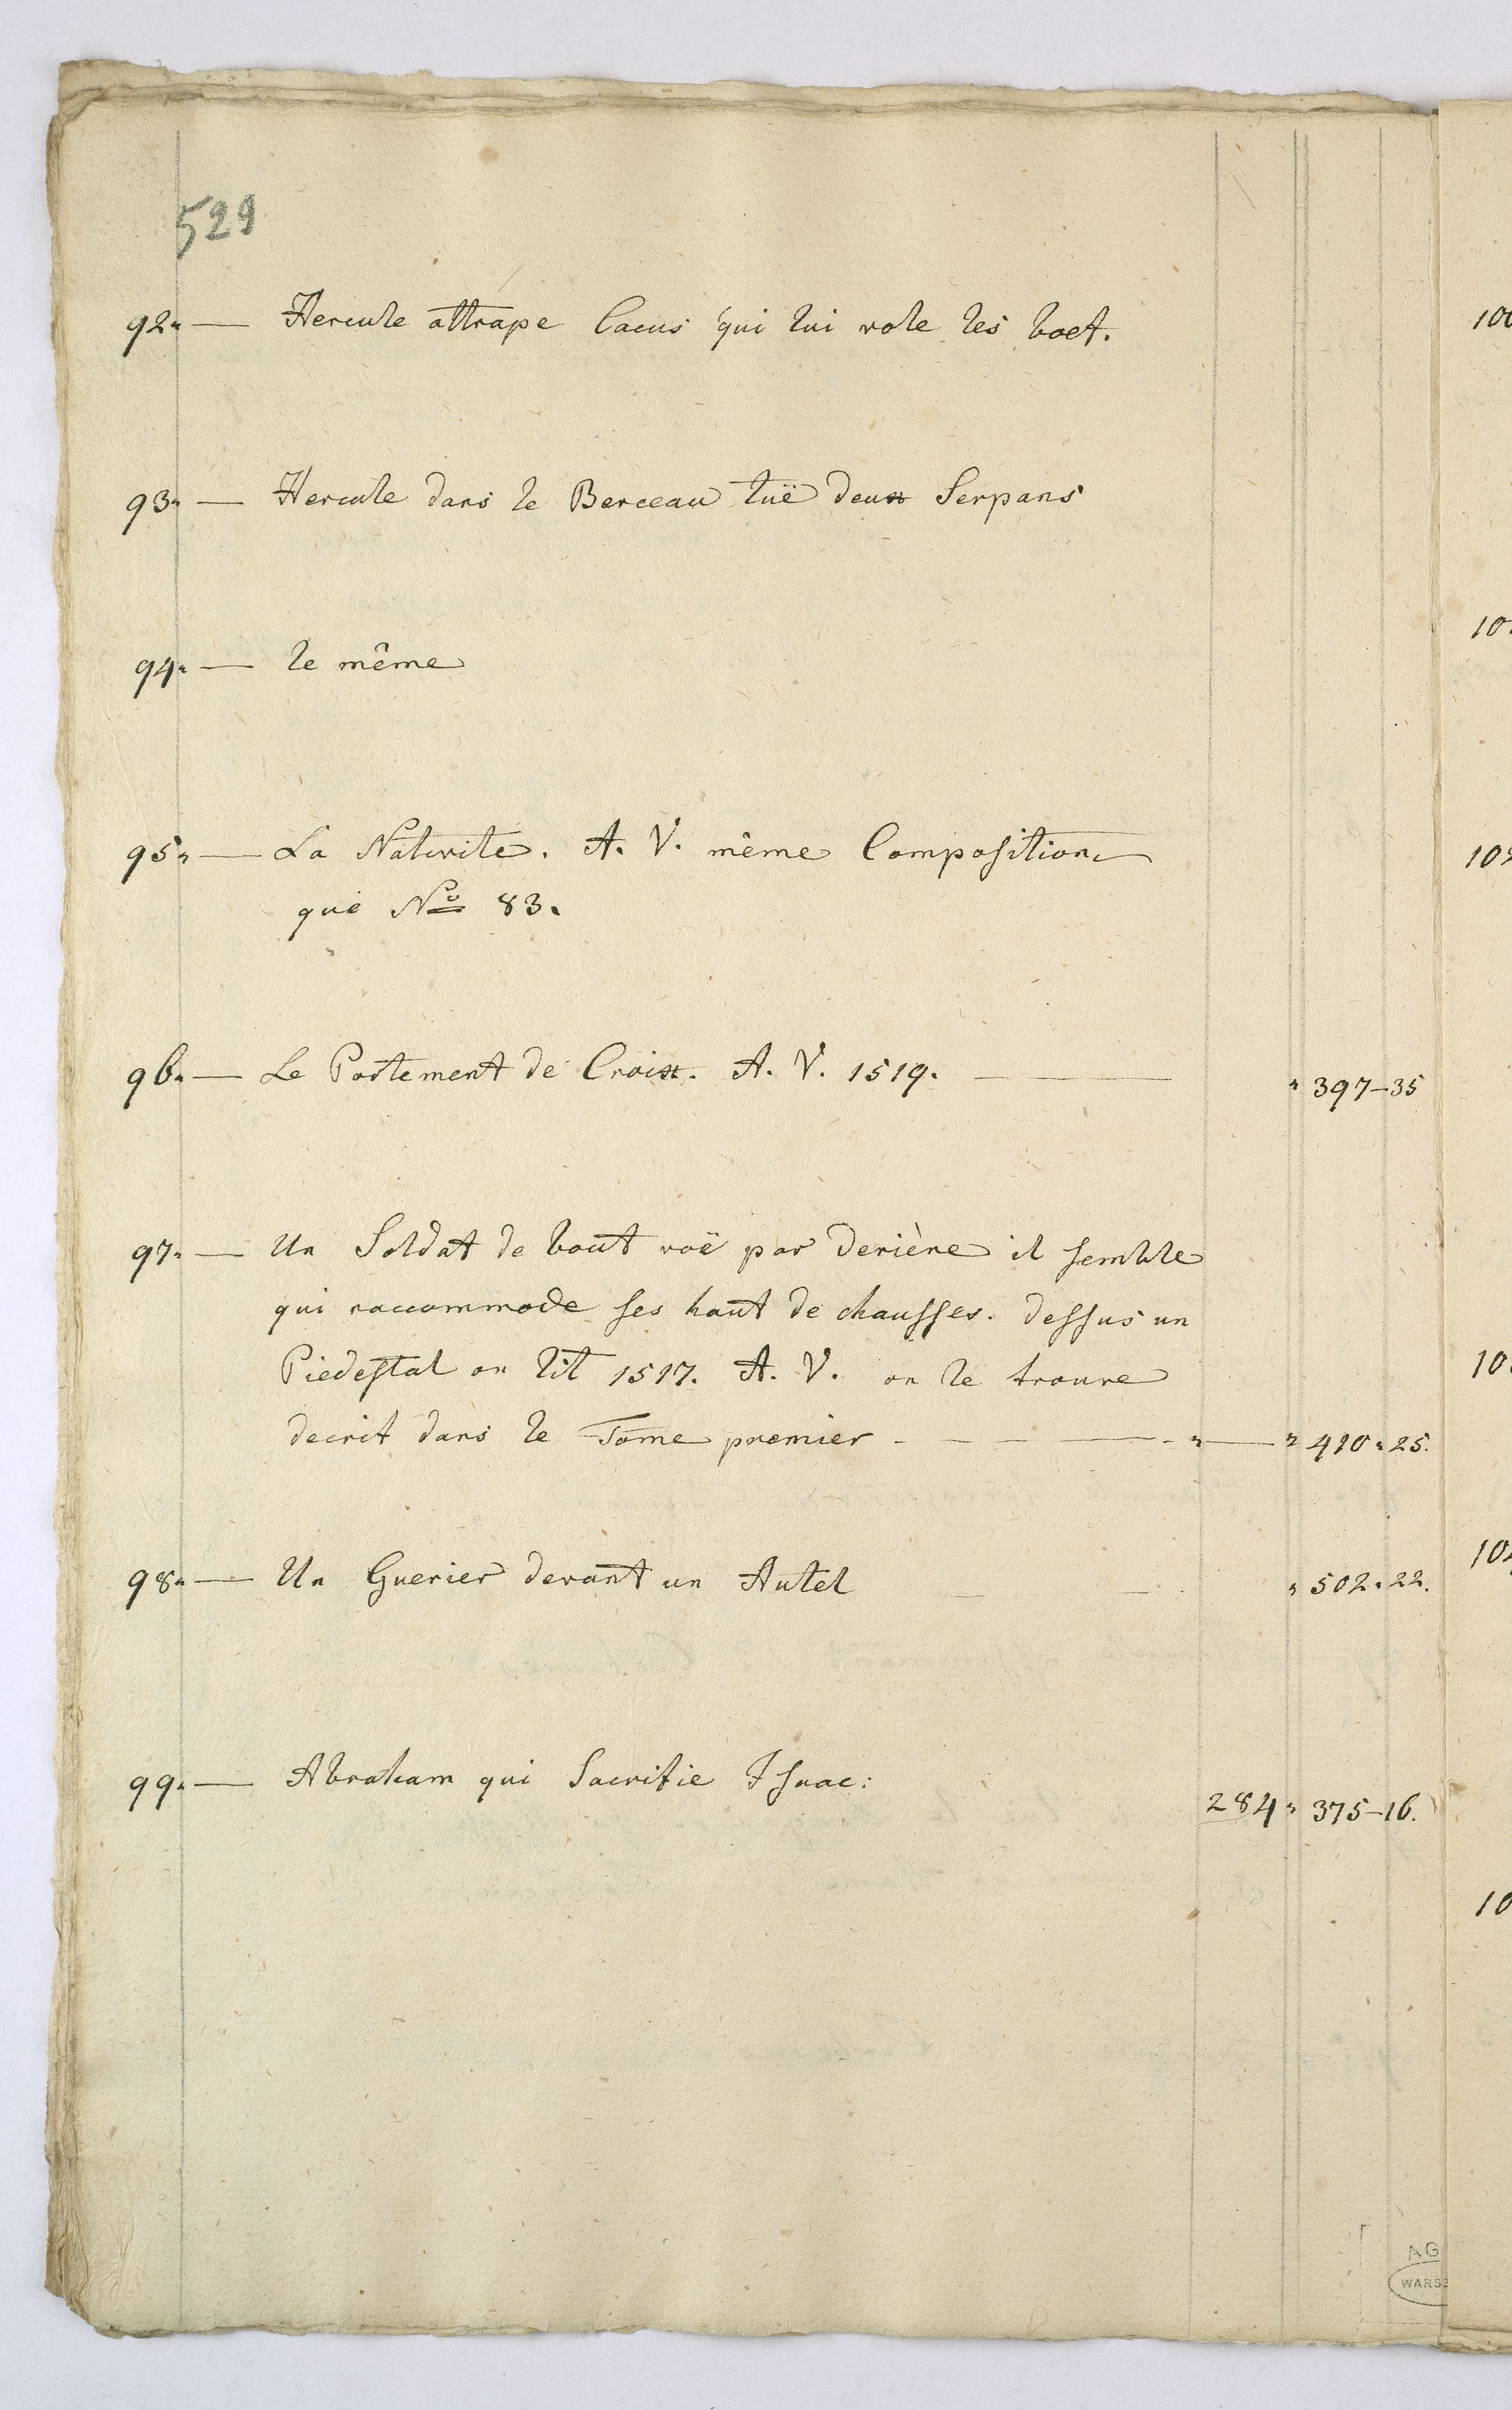 529
92. — Hercule attrape Cacus qui lui vole les boef.
93. — Hercule dans le Berceau tuë deux Serpans
94. — le même
95. — La Nativite. A. V. même Composition
que No 83.
96. — Le Portement de Croix. A. V. 1519. — " 397-35
97. — Un Soldat de bout vuë par deriène il semble
qui raccommode ses haut de chausses. dessus un
Piedestal on lit 1517. A. V. on le trouve
decrit dans le Tome premier - — " — " 410 " 25.
98. — Un Guerier devant un Autel — " 502 " 22.
99. — Abraham qui Sacrifie Isaac: 284 " 375-16.
AG
WARSZ